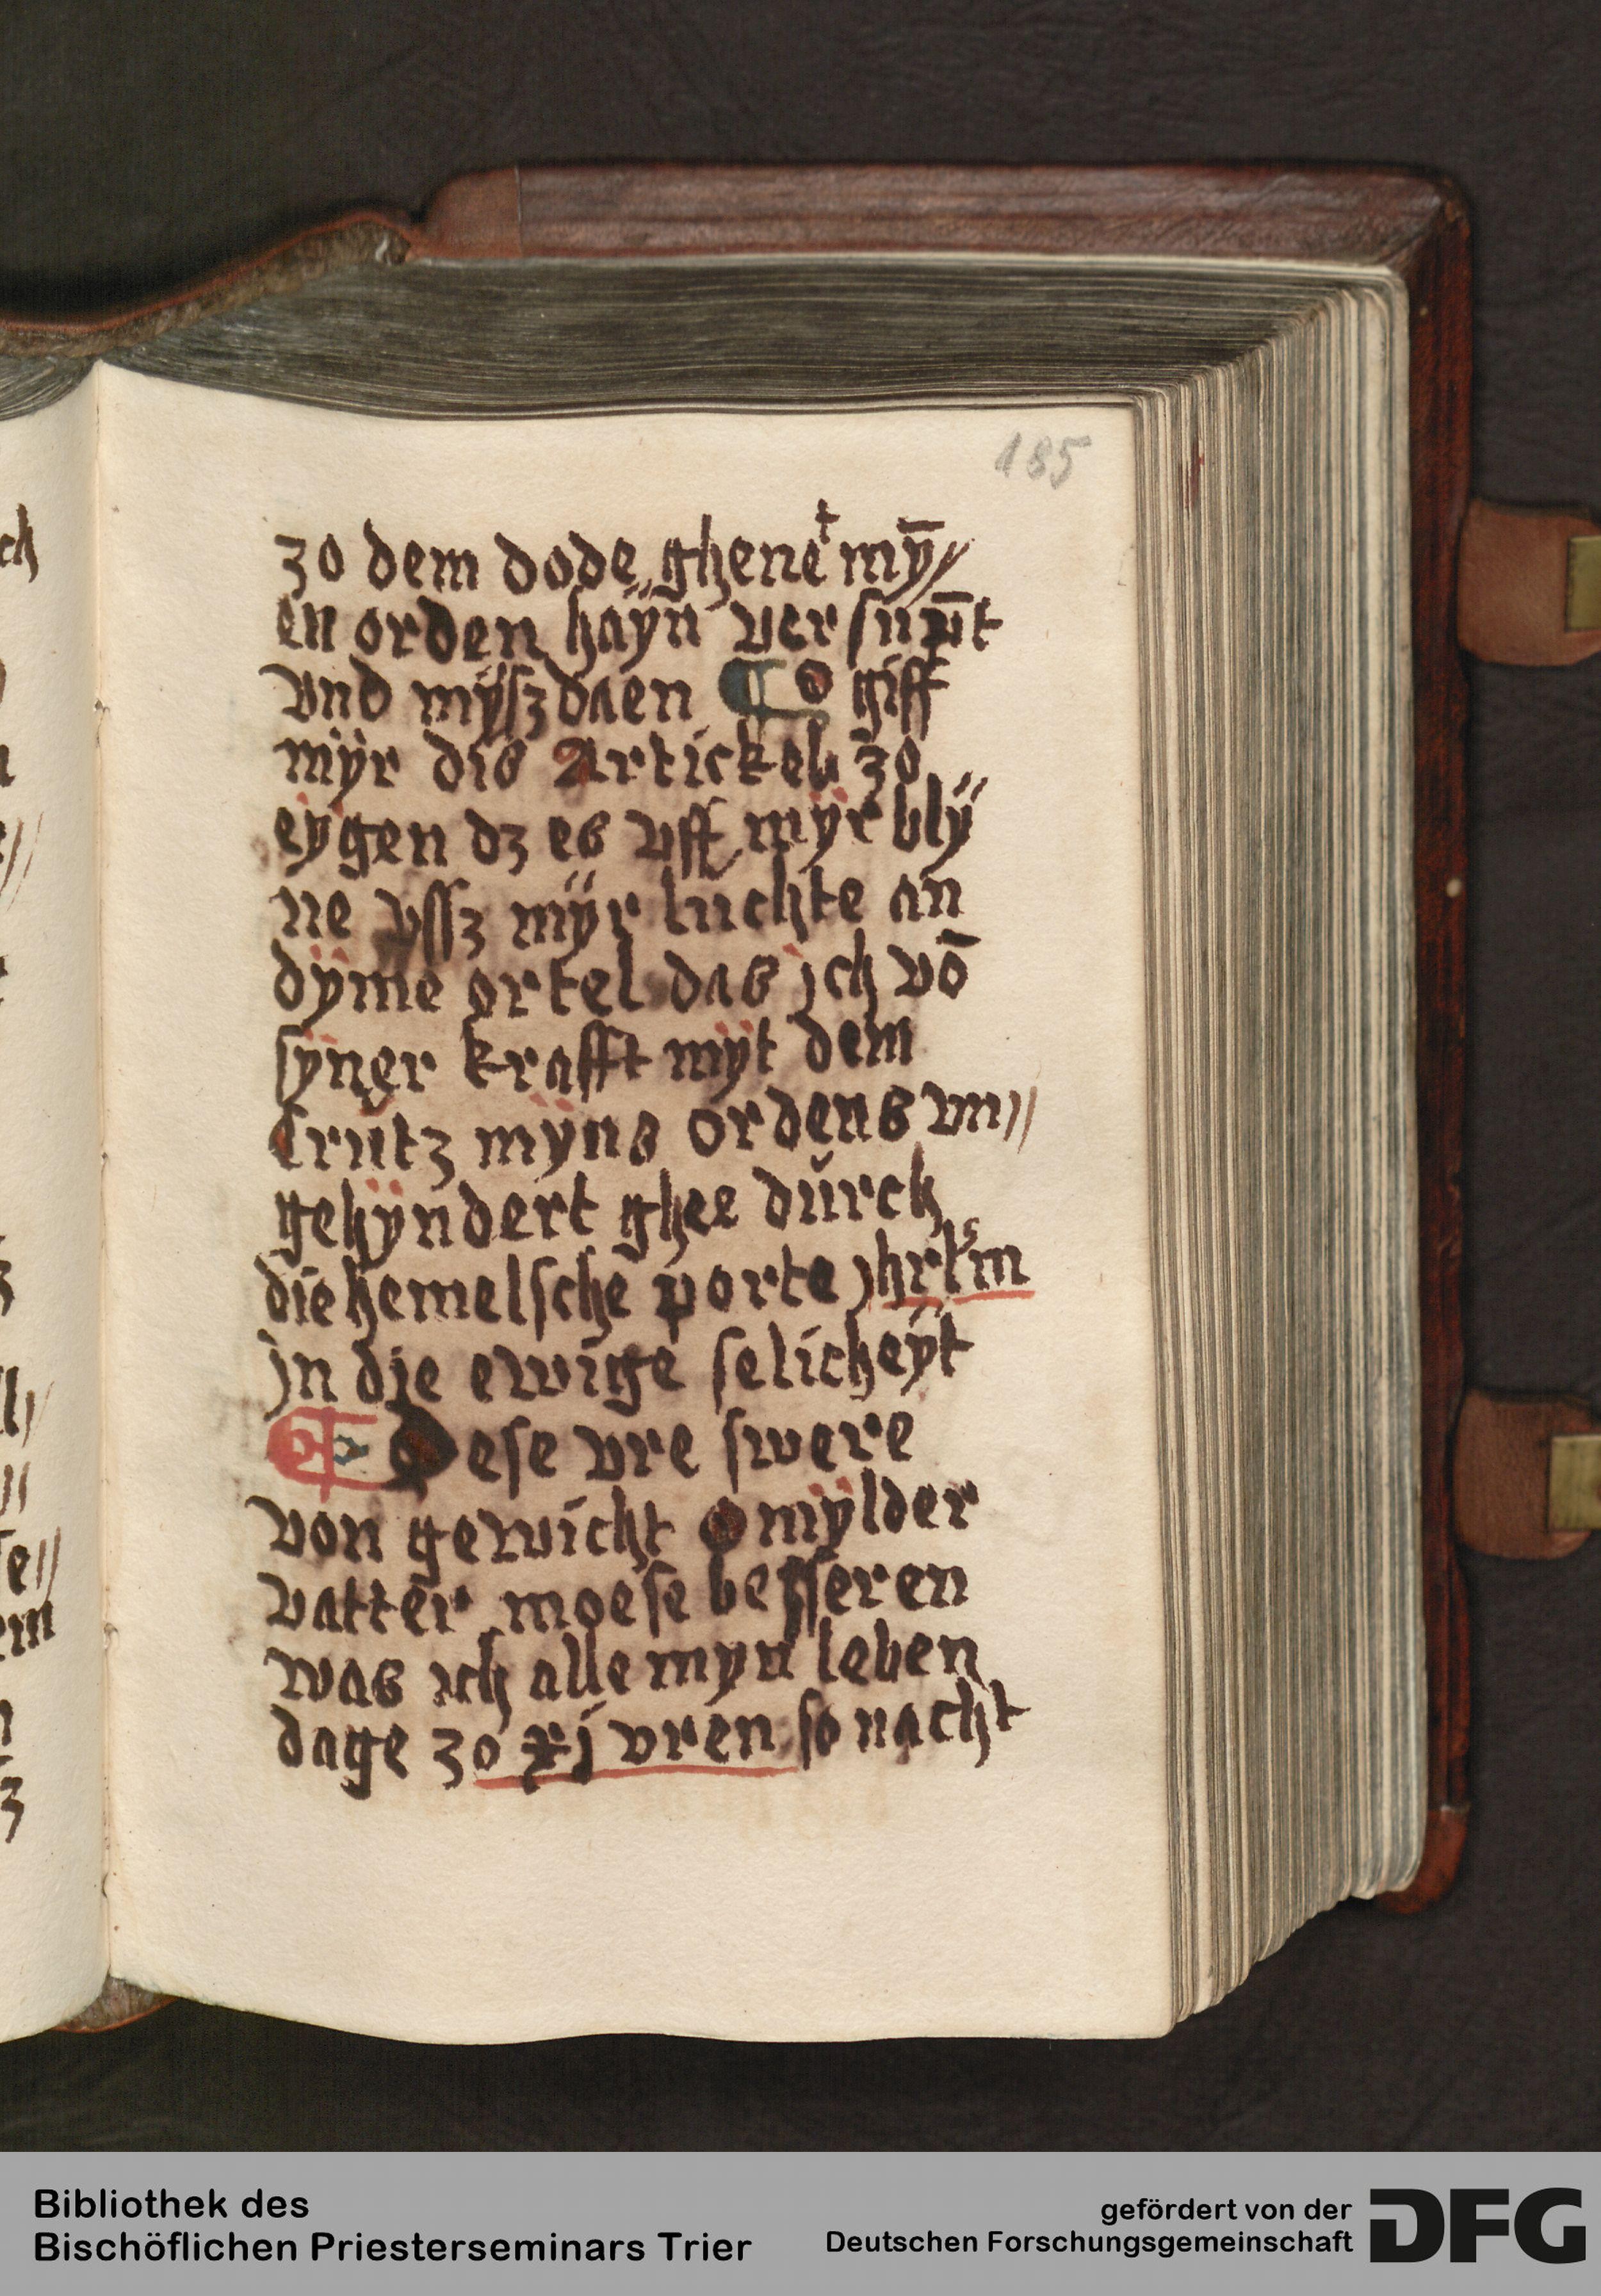 185
zo dem dode ghenet mȳ//
en orden haÿn versup̄t
vnd mÿsz daen ¶ O giff
mÿr dis Artickel zo
eÿgen dz es vff mÿr blÿ
ne vssz mÿr luchte an
dÿme ortel das jch vō
sÿner krafft mÿt dem
Crutz mÿns ordens vn//
gehÿndert ghee dŭrch
die hemelsche porte jhrlm
jn die ewige selicheÿt
¶ Dese vre swere
von gewicht O mÿlder
vatter moese besseren
was ich alle myn leben
dage zo xj vren so nacht
Bibliothek des
Bischöflichen Priesterseminars Trier
gefördert von der
Deutschen Forschungsgemeinschaft
DFG